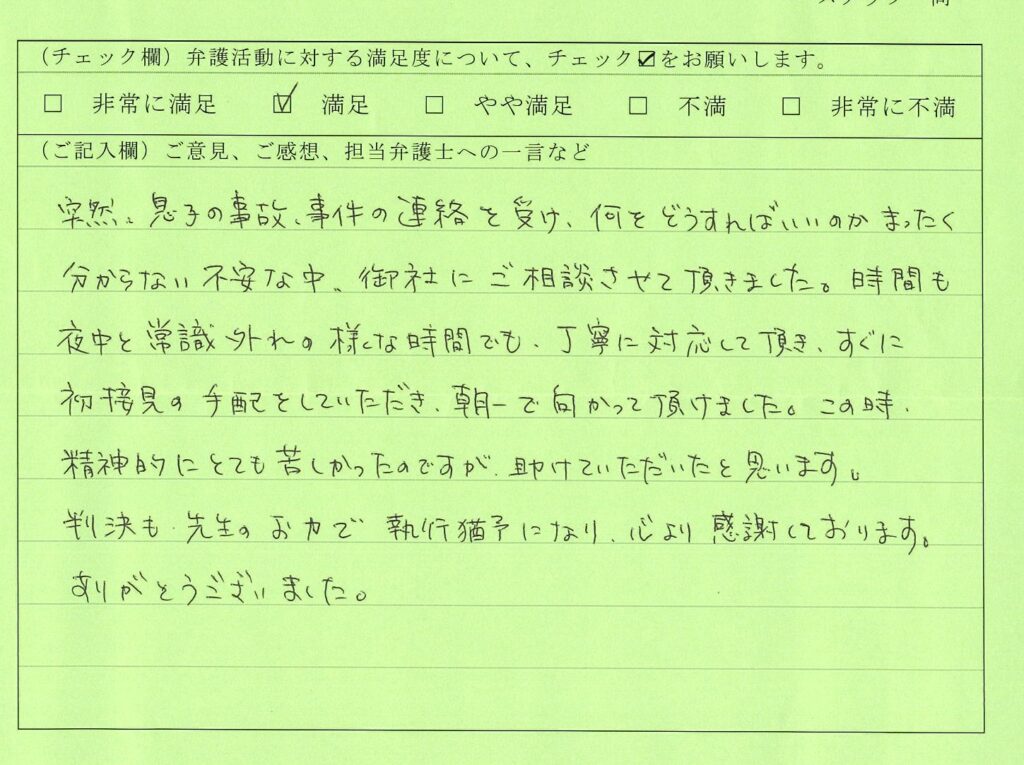 （チェック欄）弁護活動に対する満足度について、チェック☑をお願いします。
□ 非常に満足 ☑ 満足 □ やや満足 □ 不満 □ 非常に不満
（ご記入欄）ご意見、ご感想、担当弁護士への一言など
突然、息子の事故、事件の連絡を受け、何をどうすればいいのかまったく
分からない不安な中、御社にご相談させて頂きました。時間も
夜中と常識外れの様な時間でも、丁寧に対応して頂き、すぐに
初接見の手配をしていただき、朝一で向かって頂けました。この時、
精神的にとても苦しかったのですが、助けていただいたと思います。
判決も、先生のお力で執行猶予になり、心より感謝しております。
ありがとうございました。